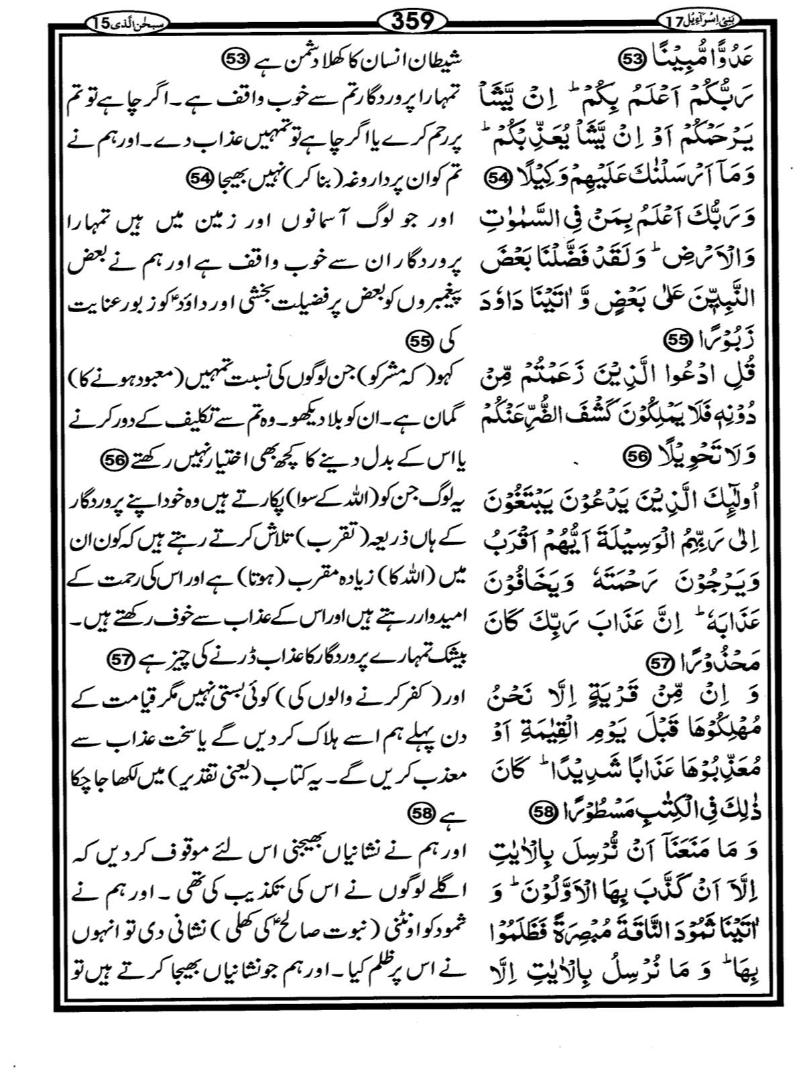 بَنِیْٓ اِسْرَآءِیْل 17
359
سبحٰن الذی 15
عَدُوًّا مُّبِیۡنًا ﴿53﴾
رَبُّکُمۡ اَعۡلَمُ بِکُمۡ ؕ اِنۡ یَّشَاۡ
یَرۡحَمۡکُمۡ اَوۡ اِنۡ یَّشَاۡ یُعَذِّبۡکُمۡ ؕ
وَمَاۤ اَرۡسَلۡنٰکَ عَلَیۡہِمۡ وَکِیۡلًا ﴿54﴾
وَرَبُّکَ اَعۡلَمُ بِمَنۡ فِی السَّمٰوٰتِ
وَالۡاَرۡضِ ؕ وَلَقَدۡ فَضَّلۡنَا بَعۡضَ
النَّبِیّٖنَ عَلٰی بَعۡضٍ وَّ اٰتَیۡنَا دَاوٗدَ
زَبُوۡرًا ﴿55﴾
قُلِ ادۡعُوا الَّذِیۡنَ زَعَمۡتُمۡ مِّنۡ
دُوۡنِہٖ فَلَا یَمۡلِکُوۡنَ کَشۡفَ الضُّرِّ عَنۡکُمۡ
وَلَا تَحۡوِیۡلًا ﴿56﴾
اُولٰٓئِکَ الَّذِیۡنَ یَدۡعُوۡنَ یَبۡتَغُوۡنَ
اِلٰی رَبِّہِمُ الۡوَسِیۡلَۃَ اَیُّہُمۡ اَقۡرَبُ
وَیَرۡجُوۡنَ رَحۡمَتَہٗ وَیَخَافُوۡنَ
عَذَابَہٗ ؕ اِنَّ عَذَابَ رَبِّکَ کَانَ
مَحۡذُوۡرًا ﴿57﴾
وَ اِنۡ مِّنۡ قَرۡیَۃٍ اِلَّا نَحۡنُ
مُہۡلِکُوۡہَا قَبۡلَ یَوۡمِ الۡقِیٰمَۃِ اَوۡ
مُعَذِّبُوۡہَا عَذَابًا شَدِیۡدًا ؕ کَانَ
ذٰلِکَ فِی الۡکِتٰبِ مَسۡطُوۡرًا ﴿58﴾
وَ مَا مَنَعَنَاۤ اَنۡ نُّرۡسِلَ بِالۡاٰیٰتِ
اِلَّاۤ اَنۡ کَذَّبَ بِہَا الۡاَوَّلُوۡنَ ؕ وَ
اٰتَیۡنَا ثَمُوۡدَ النَّاقَۃَ مُبۡصِرَۃً فَظَلَمُوۡا
بِہَا ؕ وَ مَا نُرۡسِلُ بِالۡاٰیٰتِ اِلَّا
شیطان انسان کا کھلا دشمن ہے ﴿53﴾
تمہارا پروردگار تم سے خوب واقف ہے۔ اگر چاہے تو تم
پر رحم کرے یا اگر چاہے تو تمہیں عذاب دے۔ اور ہم نے
تم کو ان پر داروغہ (بنا کر) نہیں بھیجا ﴿54﴾
اور جو لوگ آسمانوں اور زمین میں ہیں تمہارا
پروردگار ان سے خوب واقف ہے اور ہم نے بعض
پیغمبروں کو بعض پر فضیلت بخشی اور داؤدؑ کو زبور عنایت
کی ﴿55﴾
کہو (کہ مشرکو) جن لوگوں کی نسبت تمہیں (معبود ہونے کا)
گمان ہے۔ ان کو بلا دیکھو۔ وہ تم سے تکلیف کے دور کرنے
یا اس کے بدل دینے کا کچھ بھی اختیار نہیں رکھتے ﴿56﴾
یہ لوگ جن کو (اللہ کے سوا) پکارتے ہیں وہ خود اپنے پروردگار
کے ہاں ذریعہ (تقرب) تلاش کرتے رہتے ہیں کہ کون ان
میں (اللہ کا) زیادہ مقرب (ہوتا) ہے اور اس کی رحمت کے
امیدوار رہتے ہیں اور اس کے عذاب سے خوف رکھتے ہیں۔
بیشک تمہارے پروردگار کا عذاب ڈرنے کی چیز ہے ﴿57﴾
اور (کفر کرنے والوں کی) کوئی بستی نہیں مگر قیامت کے
دن پہلے ہم اسے ہلاک کر دیں گے یا سخت عذاب سے
معذب کریں گے۔ یہ کتاب (یعنی تقدیر) میں لکھا جا چکا
ہے ﴿58﴾
اور ہم نے نشانیاں بھیجنی اس لئے موقوف کر دیں کہ
اگلے لوگوں نے اس کی تکذیب کی تھی۔ اور ہم نے
ثمود کو اونٹنی (نبوت صالحؑ کی کھلی) نشانی دی تو انہوں
نے اس پر ظلم کیا۔ اور ہم جو نشانیاں بھیجا کرتے ہیں تو